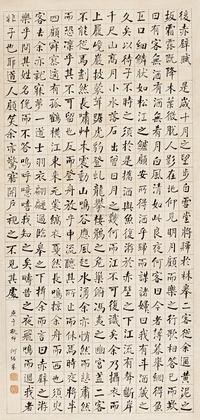 後赤壁賦 是歲十月之望步自雪堂將歸於臨皋二客從余過黃泥之
坂霜露既降木葉盡脫人影在地仰見明月顧而樂之行歌相答已而歎曰
有客無酒有酒無肴月白風清如此良夜何客曰今者薄暮舉網得魚
巨口細鱗狀如松江之鱸顧安所得酒乎歸而謀諸婦婦曰我有斗酒藏之
久矣以待子不時之須於是攜酒與魚復游於赤壁之下江流有聲斷岸
千尺山高月小水落石出曾日月之幾何而江山不可復識矣余乃攝衣而
上履巉巖披蒙茸踞虎豹登虬龍攀棲鶻之危巢俯馮夷之幽宮蓋二客
不能從焉劃然長嘯草木震動山鳴谷應風起水涌余亦悄然而悲肅然
而恐凜乎其不可留也反而登舟放乎中流聽其所止而休焉時夜將半四
顧寂寥適有孤鶴橫江東來翅如車輪元裳縞衣戛然長鳴掠余舟而西也須臾
客去余亦就寢夢一道士羽衣翩躚過臨皋之下揖余而言曰赤壁之游
樂乎問其姓名俛而不答嗚呼噫嘻我知之矣疇昔之夜飛鳴而過我者
非子也耶道人顧笑余亦驚寤開戶視之不見其處